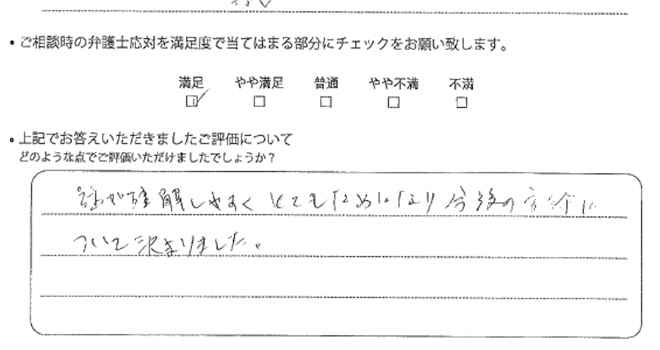 ・ご相談時の弁護士応対を満足度で当てはまる部分にチェックをお願い致します。
満足 やや満足 普通 やや不満 不満
・上記でお答えいただきましたご評価について
どのような点でご評価いただけましたでしょうか？
話が理解しやすく とてもためになり 今後の方針に
ついて決まりました。